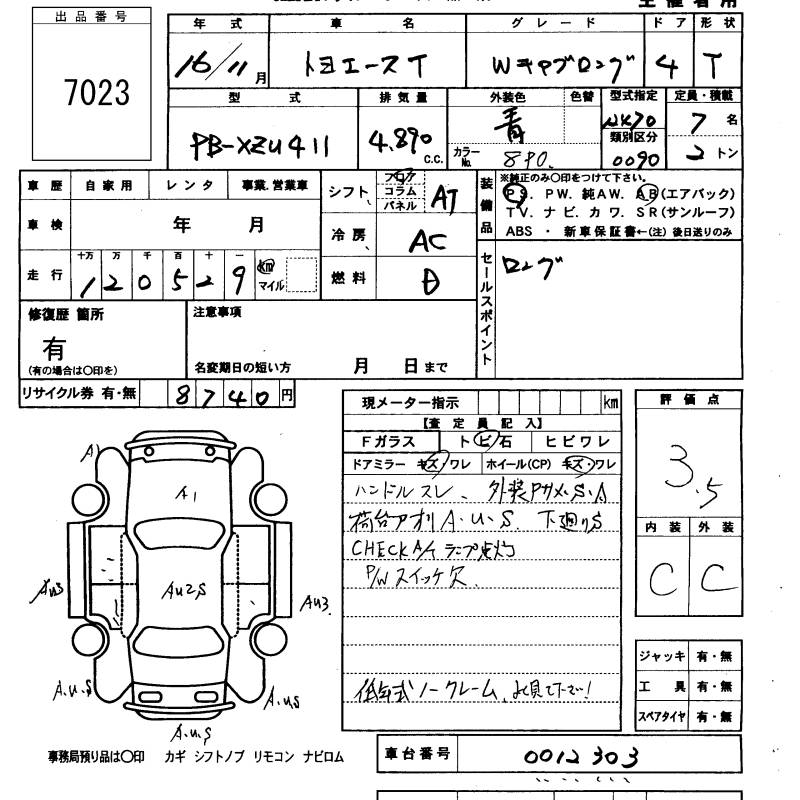 出品番号
7023
年式 車名 グレード ドア 形状
16/11月 トヨエースT Wキャブロング 4 T
型式 排気量 外装色 色替 型式指定 定員・積載
PB-XZU411 4.890 c.c. 青 カラーNo. 8P0. 類別区分 0090 7名 2トン
車歴 自家用 レンタ 事業.営業車
車検 年 月
走行 十万 万 千 百 十 一
120529 km マイル
シフト フロア コラム パネル AT
冷房 AC
燃料 D
装備品 ※純正のみ○印をつけて下さい。
PS. PW. 純AW. AB(エアバック)
TV. ナビ. カワ. SR(サンルーフ)
ABS ・ 新車保証書←(注)後日送りのみ
セールスポイント
ロング
修復歴 箇所
有
(有の場合は○印を)
注意事項
名変期日の短い方 月 日まで
リサイクル券 有・無 8740円
現メーター指示 km
【査定員記入】
Fガラス トビ石 ヒビワレ
ドアミラー キズ・ワレ ホイール(CP) キズ・ワレ
ハンドルスレ、外装PサメS.A
荷台アオリA.U.S. 下廻りS
CHECK A/T ランプ点灯
P/Wスイッチ欠
低年式ノークレーム、よく見て下さい!
評価点
3.5
内装 外装
C C
A
A1
AU2S
AU3
AU3.
A.U.S
A.U.S
A.U.S
ジャッキ 有・無
工具 有・無
スペアタイヤ 有・無
事務局預り品は○印 カギ シフトノブ リモコン ナビロム
車台番号 0012303